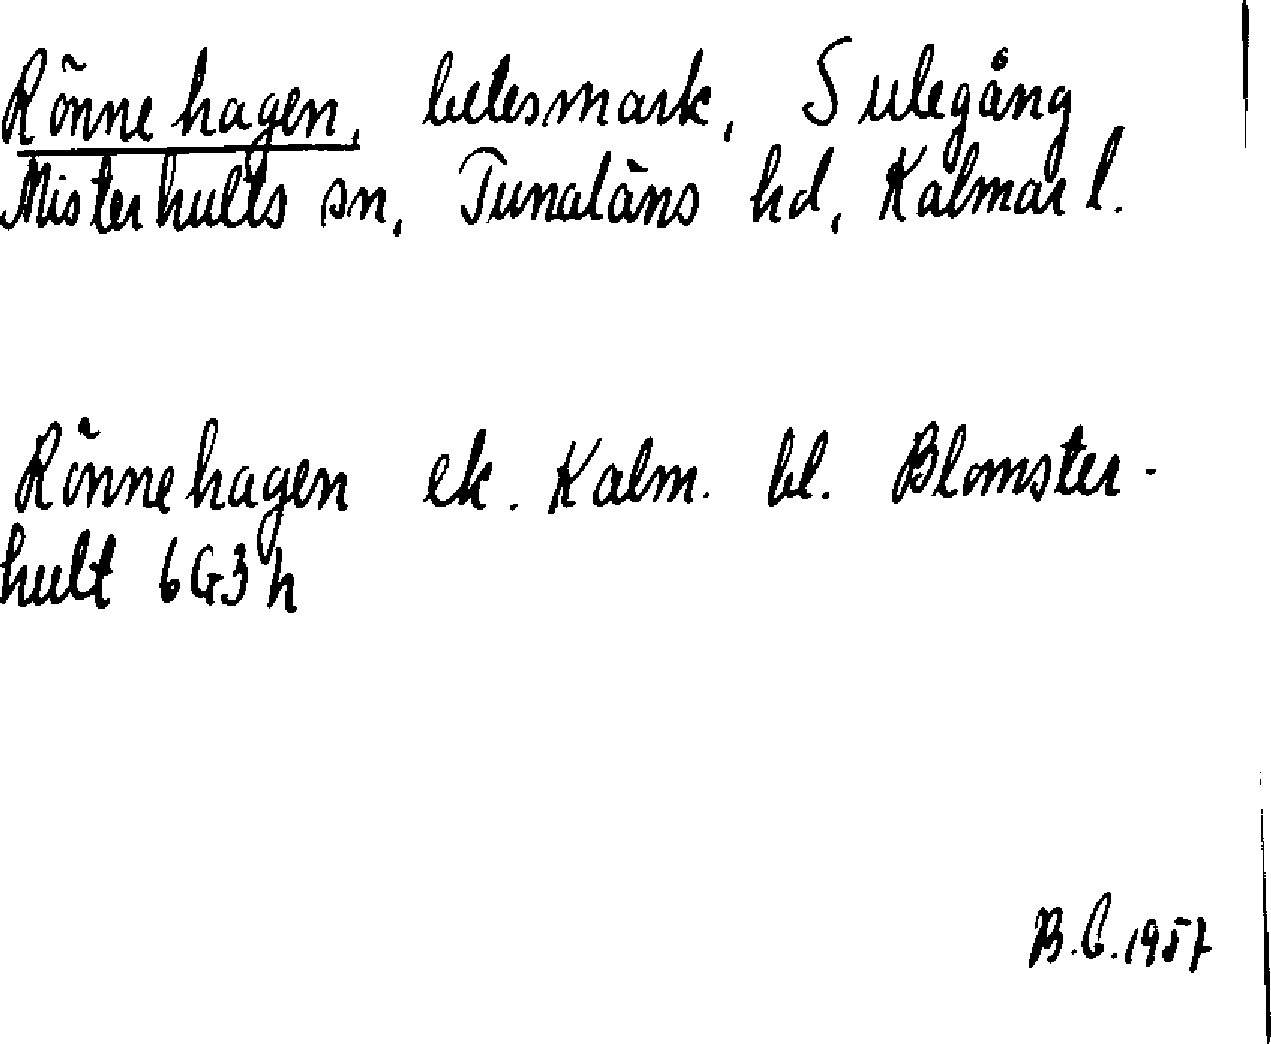 Rönnehagen, betesmark, Sulegång
Misterhults sn, Tunaläns hd, Kalmar l.
Rönnehagen ek. Kalm. bl. Blomster-
hult 6G3h
B.C. 1957